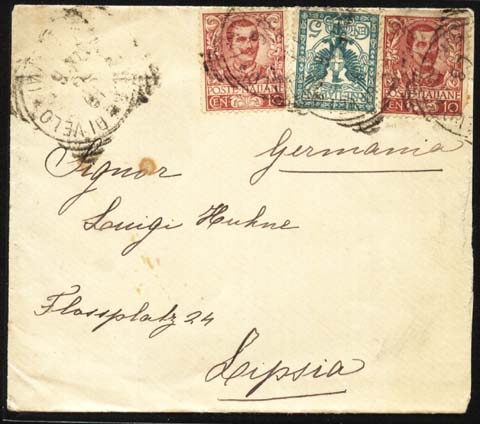 POSTE ITALIANE
CEN
POSTE ITALIANE
CEN 10
Germania
Signor
Luigi Huhne
Flossplatz 24
Lipsia